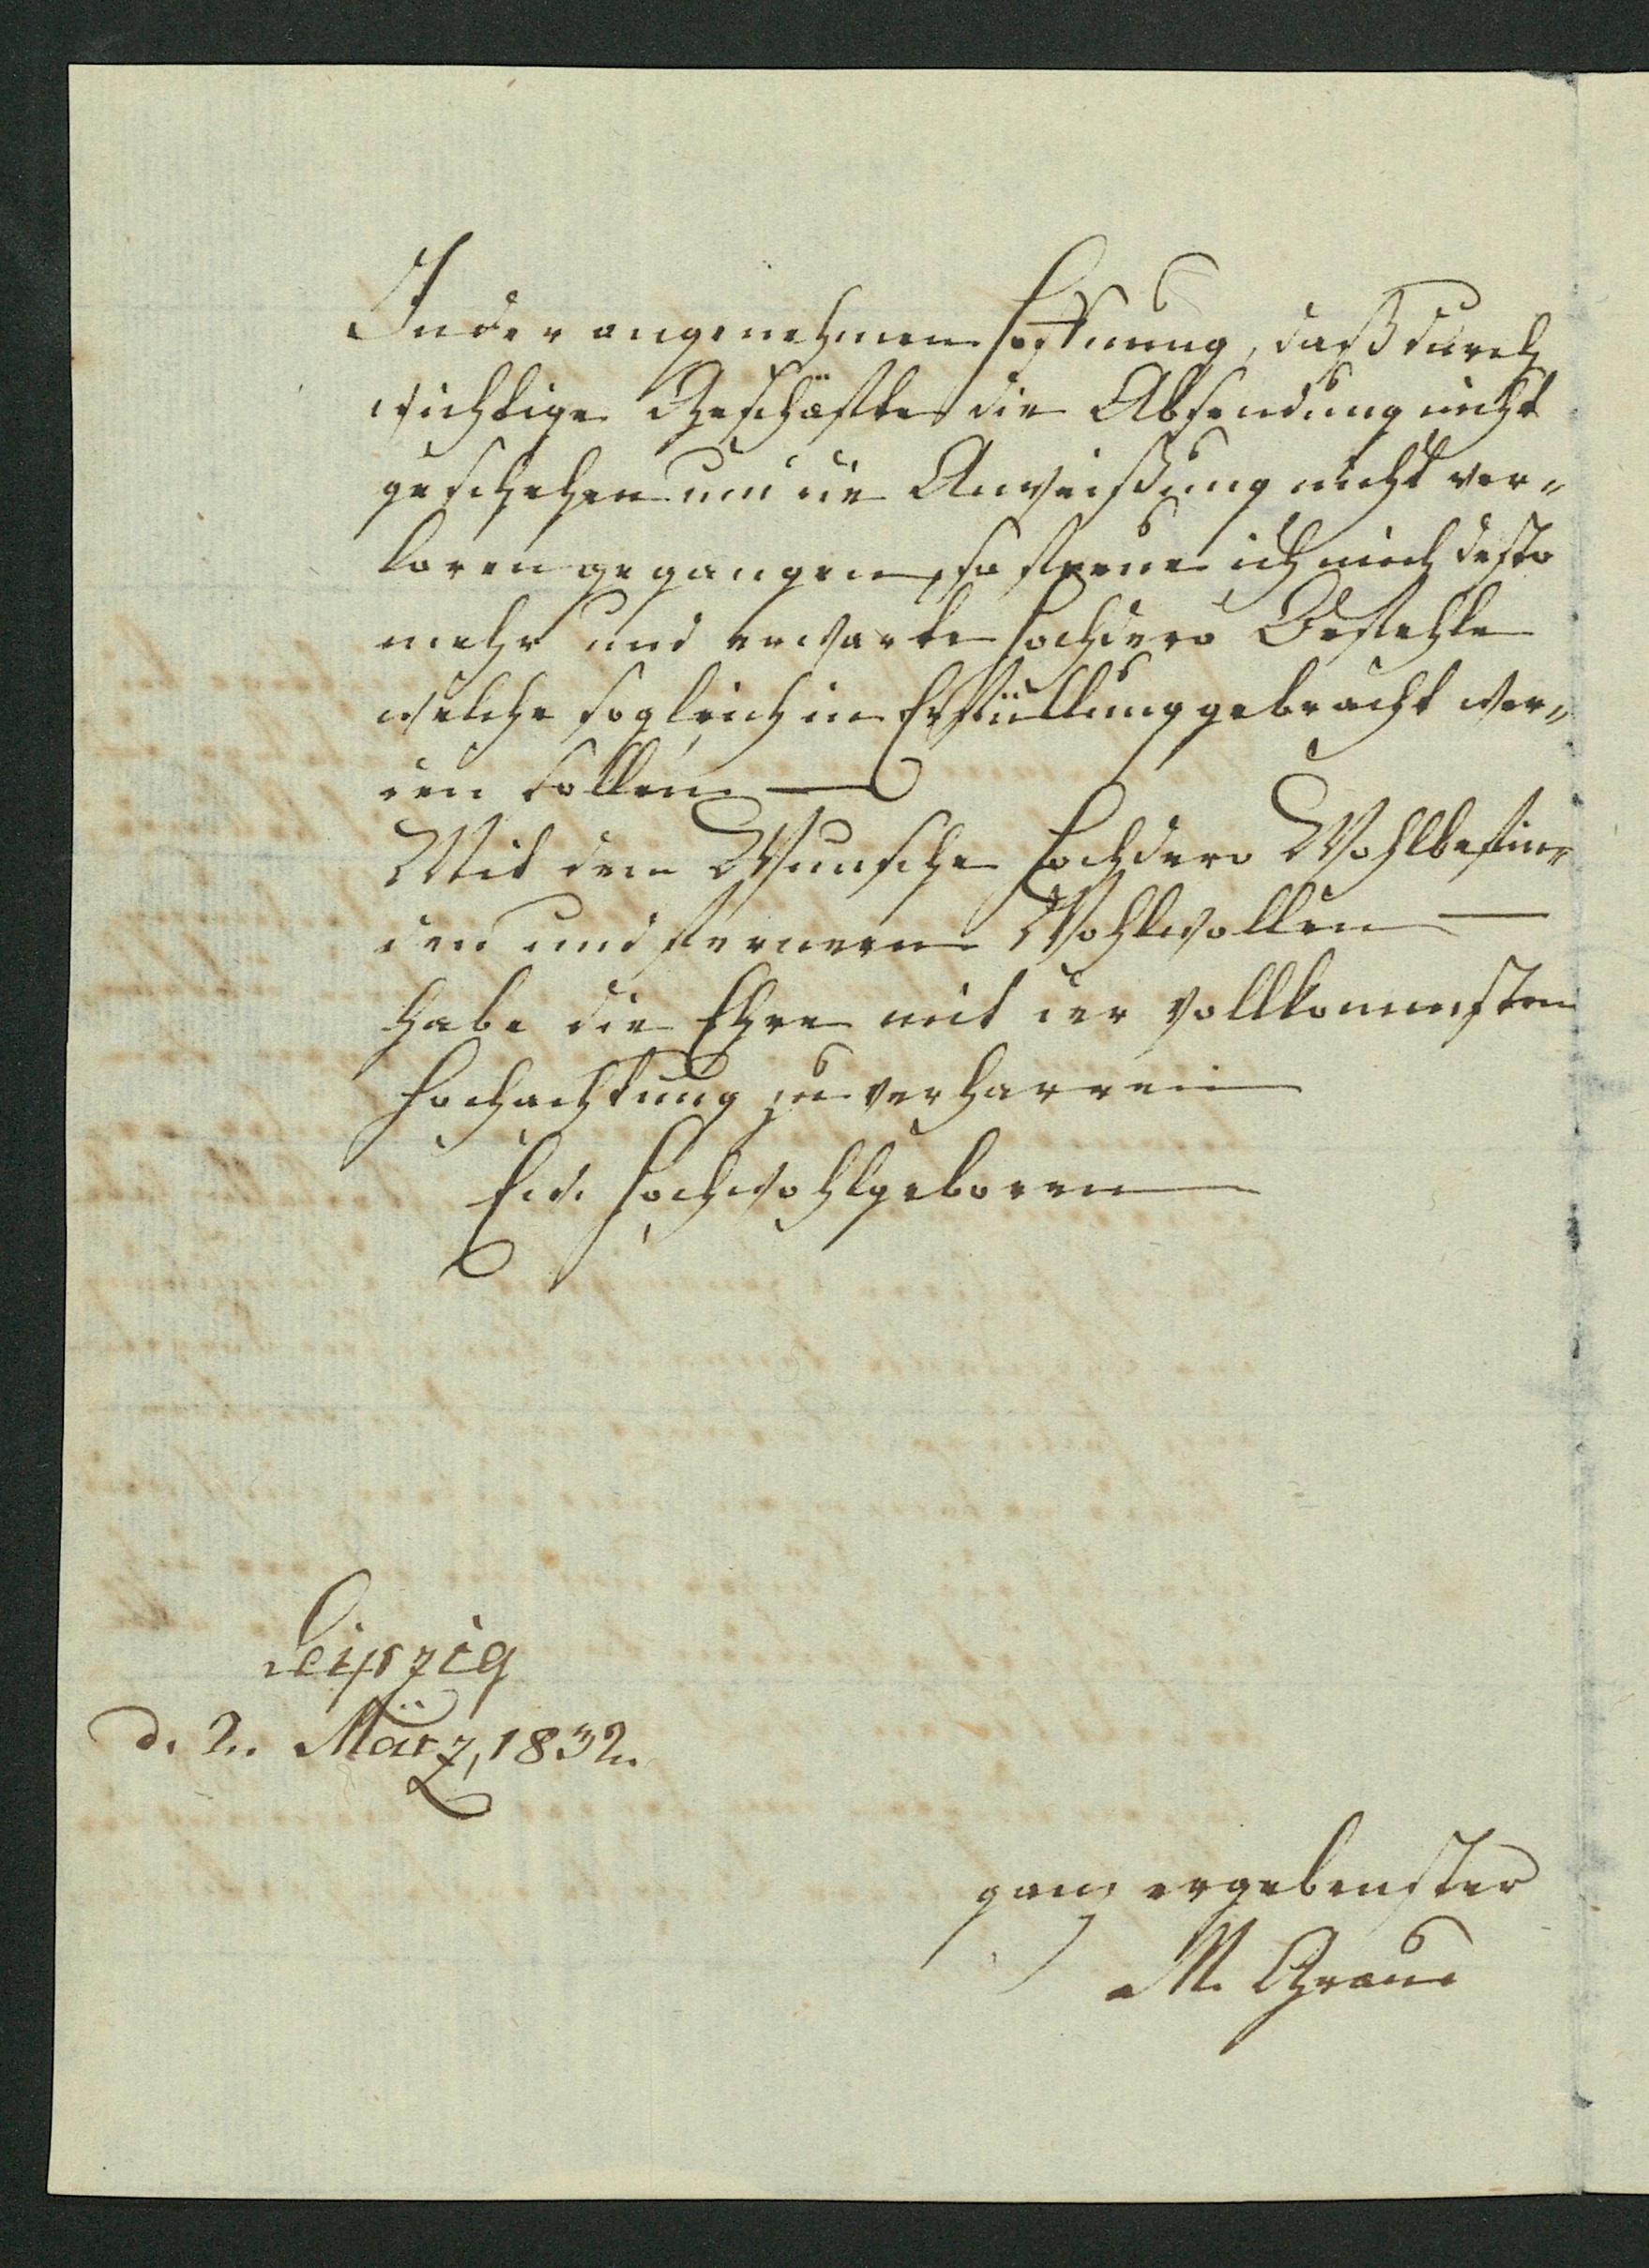 In der angenehmen Hoffnung, daß durch
wichtige Geschäfte die Absendung nicht
geschehen und die Anweißung nicht ver¬
loren gegangen, so freue ich mich desto
mehr und erwarte Hochdero Befehle
welche sogleich in Erfüllung gebracht wer¬
den sollen —
Mit dem Wunsche Hochdero Wohlbefin¬
den und fernern Wohlwollen —
habe die Ehre mit der vollkommensten
Hochachtung zu verharren
Ew. Hochwohlgeboren
Leipzig
d. 2. März, 1832.
ganz ergebenster
M. Grau